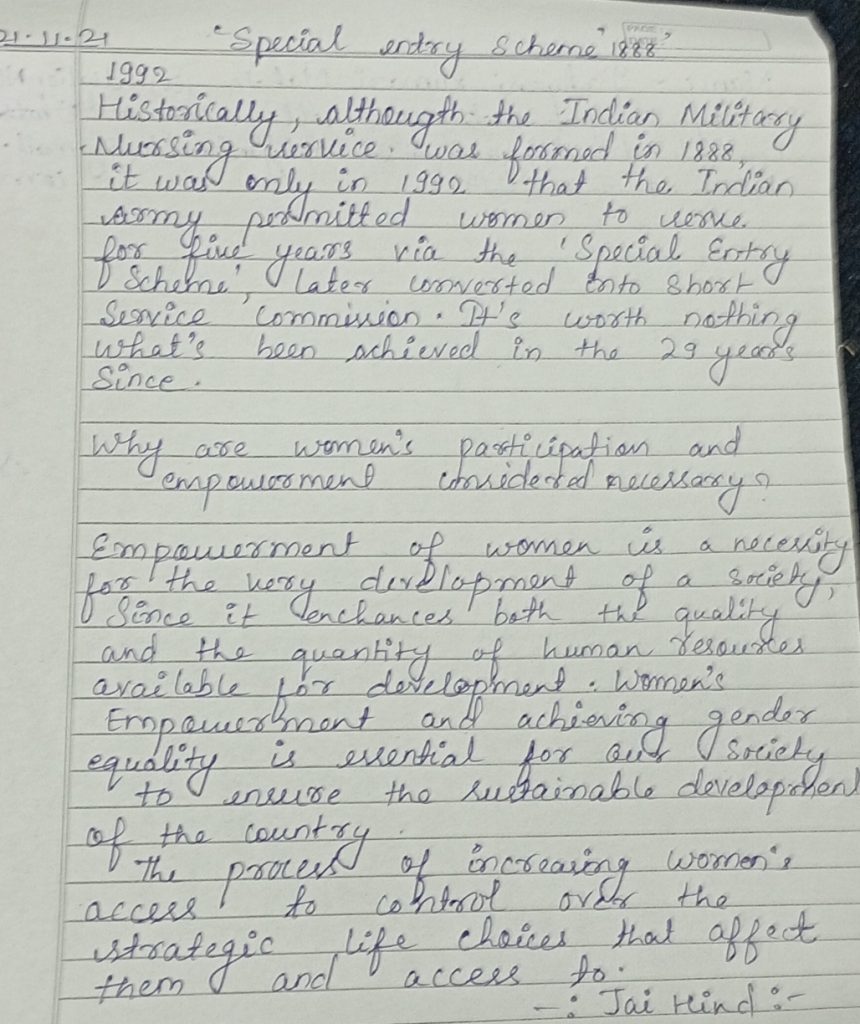 21.11.21 "Special entry scheme" 1888"
1992
Historically, althougth the Indian Military
Nursing service. was formed in 1888,
it was only in 1992 that the Indian
Army permitted women to serve
for five years via the 'Special Entry
Scheme', later converted into short
Service commission. It's worth nothing
what's been achieved in the 29 years
Since.
Why are women's participation and
empowerment considered necessary?
Empowerment of women is a necessity
for the very development of a society,
Since it enchances both the quality
and the quantity of human resources
available for development. Women's
Empowerment and achieving gender
equality is essential for our society
to ensure the sustainable development
of the country.
The process of increasing women's
access to control over the
strategic life choices that affect
them and access to.
-: Jai Hind :-